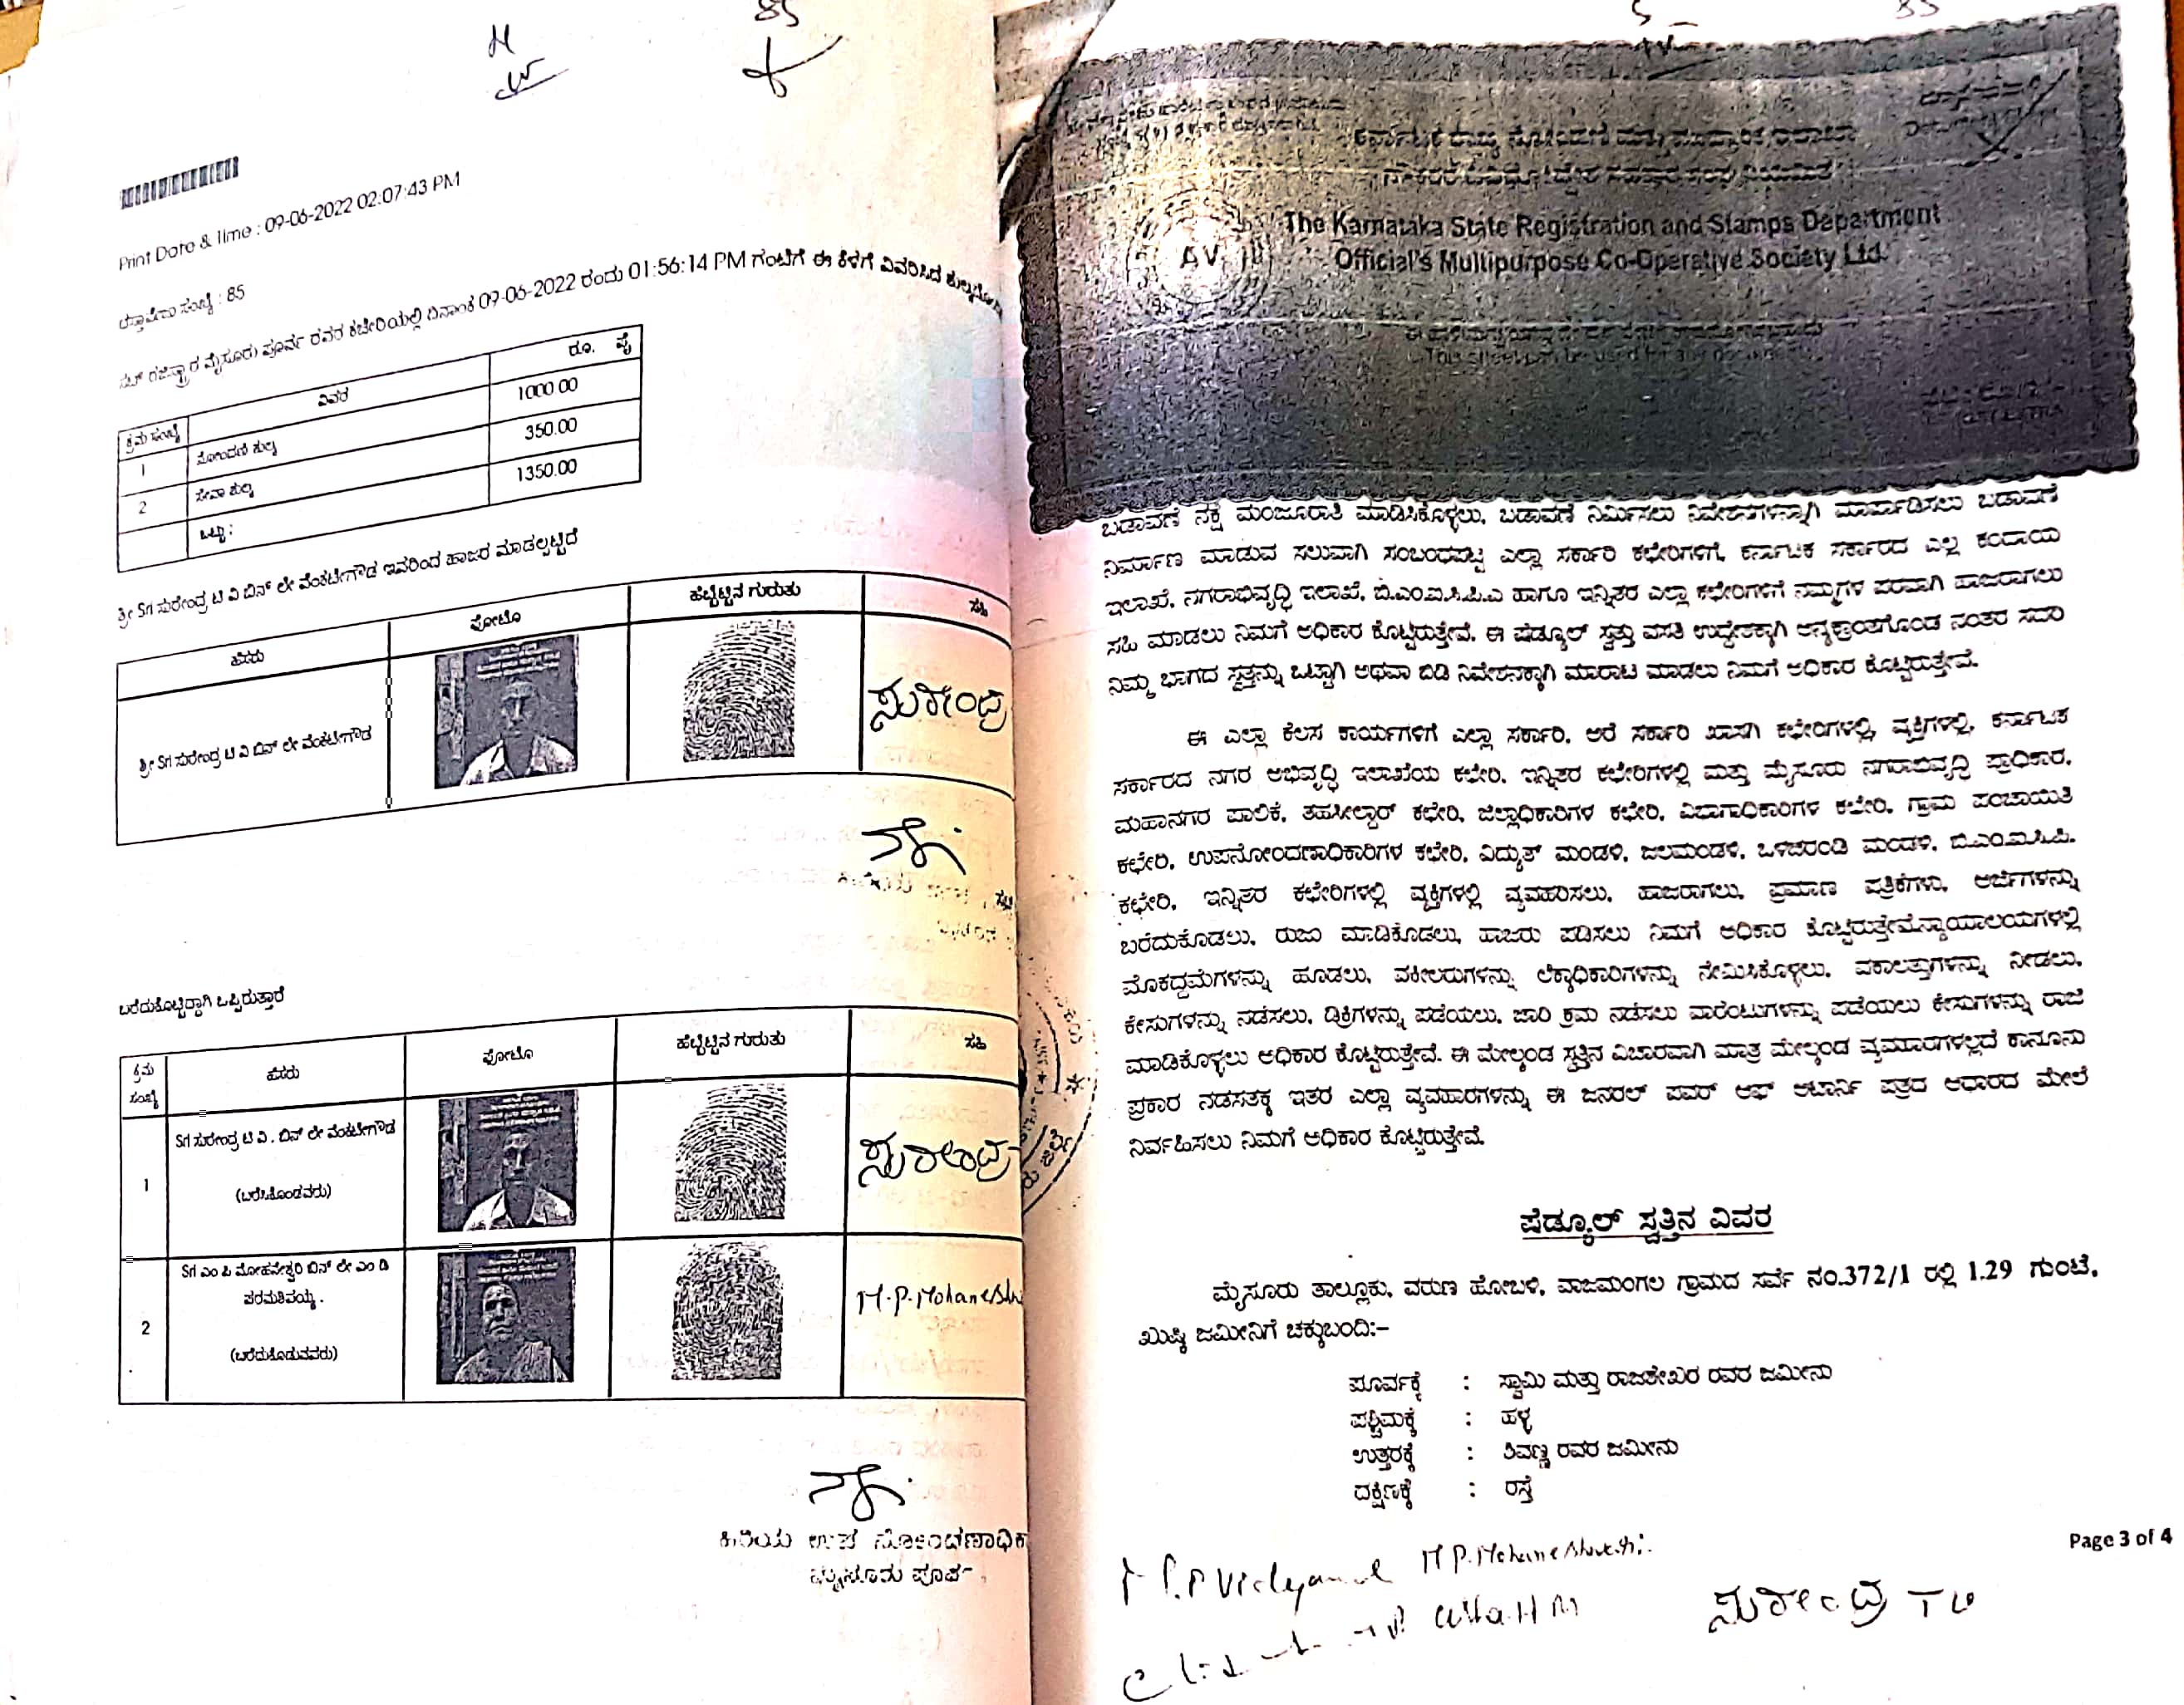 85
Print Date & Time : 09-06-2022 02:07:43 PM
ದಸ್ತಾವೇಜು ಸಂಖ್ಯೆ : 85
ಸಬ್ ರಜಿಸ್ಟ್ರಾರ ಮೈಸೂರು ಪೂರ್ವ ರವರ ಕಚೇರಿಯಲ್ಲಿ ದಿನಾಂಕ 09-06-2022 ರಂದು 01:56:14 PM ಗಂಟೆಗೆ ಈ ಕೆಳಗೆ ವಿವರಿಸಿದ
ಕ್ರಮ ಸಂಖ್ಯೆ ವಿವರ ರೂ. ಪೈ
1 ನೋಂದಣಿ ಶುಲ್ಕ 1000.00
2 ಸೇವಾ ಶುಲ್ಕ 350.00
ಒಟ್ಟು : 1350.00
ಶ್ರೀ Sri ಸುರೇಂದ್ರ ಟಿ ವಿ ಬಿನ್ ಲೇ ವೆಂಕಟೇಗೌಡ ಇವರಿಂದ ಹಾಜರ ಮಾಡಲ್ಪಟ್ಟಿದೆ
ಹೆಸರು ಫೋಟೊ ಹೆಬ್ಬೆಟ್ಟಿನ ಗುರುತು ಸಹಿ
ಶ್ರೀ Sri ಸುರೇಂದ್ರ ಟಿ ವಿ ಬಿನ್ ಲೇ ವೆಂಕಟೇಗೌಡ ಸುರೇಂದ್ರ
ಬರೆದುಕೊಟ್ಟಿದ್ದಾಗಿ ಒಪ್ಪಿರುತ್ತಾರೆ
ಕ್ರಮ ಸಂಖ್ಯೆ ಹೆಸರು ಫೋಟೊ ಹೆಬ್ಬೆಟ್ಟಿನ ಗುರುತು ಸಹಿ
1 Sri ಸುರೇಂದ್ರ ಟಿ ವಿ . ಬಿನ್ ಲೇ ವೆಂಕಟೇಗೌಡ ಸುರೇಂದ್ರ
(ಬರೆಸಿಕೊಂಡವರು)
2 Sri ಎಂ ಪಿ ಮೋಹನೇಶ್ವರಿ ಬಿನ್ ಲೇ ಎಂ ಡಿ
ಪರಮಶಿವಯ್ಯ . M.P.Mohaneshw
(ಬರೆದುಕೊಡುವವರು)
ಹಿರಿಯ ಉಪ ನೋಂದಣಾಧಿಕಾ
ಮೈಸೂರು ಪೂರ್ವ
ಕರ್ನಾಟಕ ರಾಜ್ಯ ನೋಂದಣಿ ಮತ್ತು ಮುದ್ರಾಂಕ ಇಲಾಖಾ
ನೌಕರರ ವಿವಿಧೋದ್ದೇಶ ಸಹಕಾರ ಸಂಘ ನಿಯಮಿತ
The Karnataka State Registration and Stamps Department
Official's Multipurpose Co-Operative Society Ltd.
This sheet can be used for any document
ಬಡಾವಣೆ ನಕ್ಷೆ ಮಂಜೂರಾತಿ ಮಾಡಿಸಿಕೊಳ್ಳಲು, ಬಡಾವಣೆ ನಿರ್ಮಿಸಲು ನಿವೇಶನಗಳನ್ನಾಗಿ ಮಾರ್ಪಾಡಿಸಲು ಬಡಾವಣೆ
ನಿರ್ಮಾಣ ಮಾಡುವ ಸಲುವಾಗಿ ಸಂಬಂಧಪಟ್ಟ ಎಲ್ಲಾ ಸರ್ಕಾರಿ ಕಛೇರಿಗಳಿಗೆ, ಕರ್ನಾಟಕ ಸರ್ಕಾರದ ಎಲ್ಲ ಕಂದಾಯ
ಇಲಾಖೆ, ನಗರಾಭಿವೃದ್ಧಿ ಇಲಾಖೆ, ಬಿ.ಎಂ.ಐ.ಸಿ.ಪಿ.ಎ ಹಾಗೂ ಇನ್ನಿತರ ಎಲ್ಲಾ ಕಛೇರಿಗಳಿಗೆ ನಮ್ಮಗಳ ಪರವಾಗಿ ಹಾಜರಾಗಲು
ಸಹಿ ಮಾಡಲು ನಿಮಗೆ ಅಧಿಕಾರ ಕೊಟ್ಟಿರುತ್ತೇವೆ. ಈ ಷೆಡ್ಯೂಲ್ ಸ್ವತ್ತು ವಸತಿ ಉದ್ದೇಶಕ್ಕಾಗಿ ಅನ್ಯಕ್ರಾಂತಗೊಂಡ ನಂತರ ಸದರಿ
ನಿಮ್ಮ ಭಾಗದ ಸ್ವತ್ತನ್ನು ಒಟ್ಟಾಗಿ ಅಥವಾ ಬಿಡಿ ನಿವೇಶನಕ್ಕಾಗಿ ಮಾರಾಟ ಮಾಡಲು ನಿಮಗೆ ಅಧಿಕಾರ ಕೊಟ್ಟಿರುತ್ತೇವೆ.
ಈ ಎಲ್ಲಾ ಕೆಲಸ ಕಾರ್ಯಗಳಿಗೆ ಎಲ್ಲಾ ಸರ್ಕಾರಿ, ಅರೆ ಸರ್ಕಾರಿ ಖಾಸಗಿ ಕಛೇರಿಗಳಲ್ಲಿ, ವ್ಯಕ್ತಿಗಳಲ್ಲಿ, ಕರ್ನಾಟಕ
ಸರ್ಕಾರದ ನಗರ ಅಭಿವೃದ್ಧಿ ಇಲಾಖೆಯ ಕಛೇರಿ, ಇನ್ನಿತರ ಕಛೇರಿಗಳಲ್ಲಿ ಮತ್ತು ಮೈಸೂರು ನಗರಾಭಿವೃದ್ಧಿ ಪ್ರಾಧಿಕಾರ,
ಮಹಾನಗರ ಪಾಲಿಕೆ, ತಹಸೀಲ್ದಾರ್ ಕಛೇರಿ, ಜಿಲ್ಲಾಧಿಕಾರಿಗಳ ಕಛೇರಿ, ವಿಭಾಗಾಧಿಕಾರಿಗಳ ಕಛೇರಿ, ಗ್ರಾಮ ಪಂಚಾಯಿತಿ
ಕಛೇರಿ, ಉಪನೋಂದಣಾಧಿಕಾರಿಗಳ ಕಛೇರಿ, ವಿದ್ಯುತ್ ಮಂಡಳಿ, ಜಲಮಂಡಳಿ, ಒಳಚರಂಡಿ ಮಂಡಳಿ, ಬಿ.ಎಂ.ಐ.ಸಿ.ಪಿ.
ಕಛೇರಿ, ಇನ್ನಿತರ ಕಛೇರಿಗಳಲ್ಲಿ ವ್ಯಕ್ತಿಗಳಲ್ಲಿ ವ್ಯವಹರಿಸಲು, ಹಾಜರಾಗಲು, ಪ್ರಮಾಣ ಪತ್ರಿಕೆಗಳು, ಅರ್ಜಿಗಳನ್ನು
ಬರೆದುಕೊಡಲು, ರುಜು ಮಾಡಿಕೊಡಲು, ಹಾಜರು ಪಡಿಸಲು ನಿಮಗೆ ಅಧಿಕಾರ ಕೊಟ್ಟಿರುತ್ತೇವೆನ್ಯಾಯಾಲಯಗಳಲ್ಲಿ
ಮೊಕದ್ದಮೆಗಳನ್ನು ಹೂಡಲು, ವಕೀಲರುಗಳನ್ನು ಲೆಕ್ಕಾಧಿಕಾರಿಗಳನ್ನು ನೇಮಿಸಿಕೊಳ್ಳಲು, ವಕಾಲತ್ತುಗಳನ್ನು ನೀಡಲು,
ಕೇಸುಗಳನ್ನು ನಡೆಸಲು, ಡಿಕ್ರಿಗಳನ್ನು ಪಡೆಯಲು, ಜಾರಿ ಕ್ರಮ ನಡೆಸಲು ವಾರೆಂಟುಗಳನ್ನು ಪಡೆಯಲು ಕೇಸುಗಳನ್ನು ರಾಜಿ
ಮಾಡಿಕೊಳ್ಳಲು ಅಧಿಕಾರ ಕೊಟ್ಟಿರುತ್ತೇವೆ. ಈ ಮೇಲ್ಕಂಡ ಸ್ವತ್ತಿನ ವಿಚಾರವಾಗಿ ಮಾತ್ರ ಮೇಲ್ಕಂಡ ವ್ಯವಹಾರಗಳಲ್ಲದೆ ಕಾನೂನು
ಪ್ರಕಾರ ನಡೆಸತಕ್ಕ ಇತರ ಎಲ್ಲಾ ವ್ಯವಹಾರಗಳನ್ನು ಈ ಜನರಲ್ ಪವರ್ ಆಫ್ ಅಟಾರ್ನಿ ಪತ್ರದ ಆಧಾರದ ಮೇಲೆ
ನಿರ್ವಹಿಸಲು ನಿಮಗೆ ಅಧಿಕಾರ ಕೊಟ್ಟಿರುತ್ತೇವೆ.
ಷೆಡ್ಯೂಲ್ ಸ್ವತ್ತಿನ ವಿವರ
ಮೈಸೂರು ತಾಲ್ಲೂಕು, ವರುಣ ಹೋಬಳಿ, ವಾಜಮಂಗಲ ಗ್ರಾಮದ ಸರ್ವೆ ನಂ.372/1 ರಲ್ಲಿ 1.29 ಗುಂಟೆ,
ಖುಷ್ಕಿ ಜಮೀನಿಗೆ ಚಕ್ಕುಬಂದಿ:-
ಪೂರ್ವಕ್ಕೆ : ಸ್ವಾಮಿ ಮತ್ತು ರಾಜಶೇಖರ ರವರ ಜಮೀನು
ಪಶ್ಚಿಮಕ್ಕೆ : ಹಳ್ಳ
ಉತ್ತರಕ್ಕೆ : ಶಿವಣ್ಣ ರವರ ಜಮೀನು
ದಕ್ಷಿಣಕ್ಕೆ : ರಸ್ತೆ
Page 3 of 4
M P. Mohaneshwari
ಸುರೇಂದ್ರ T V